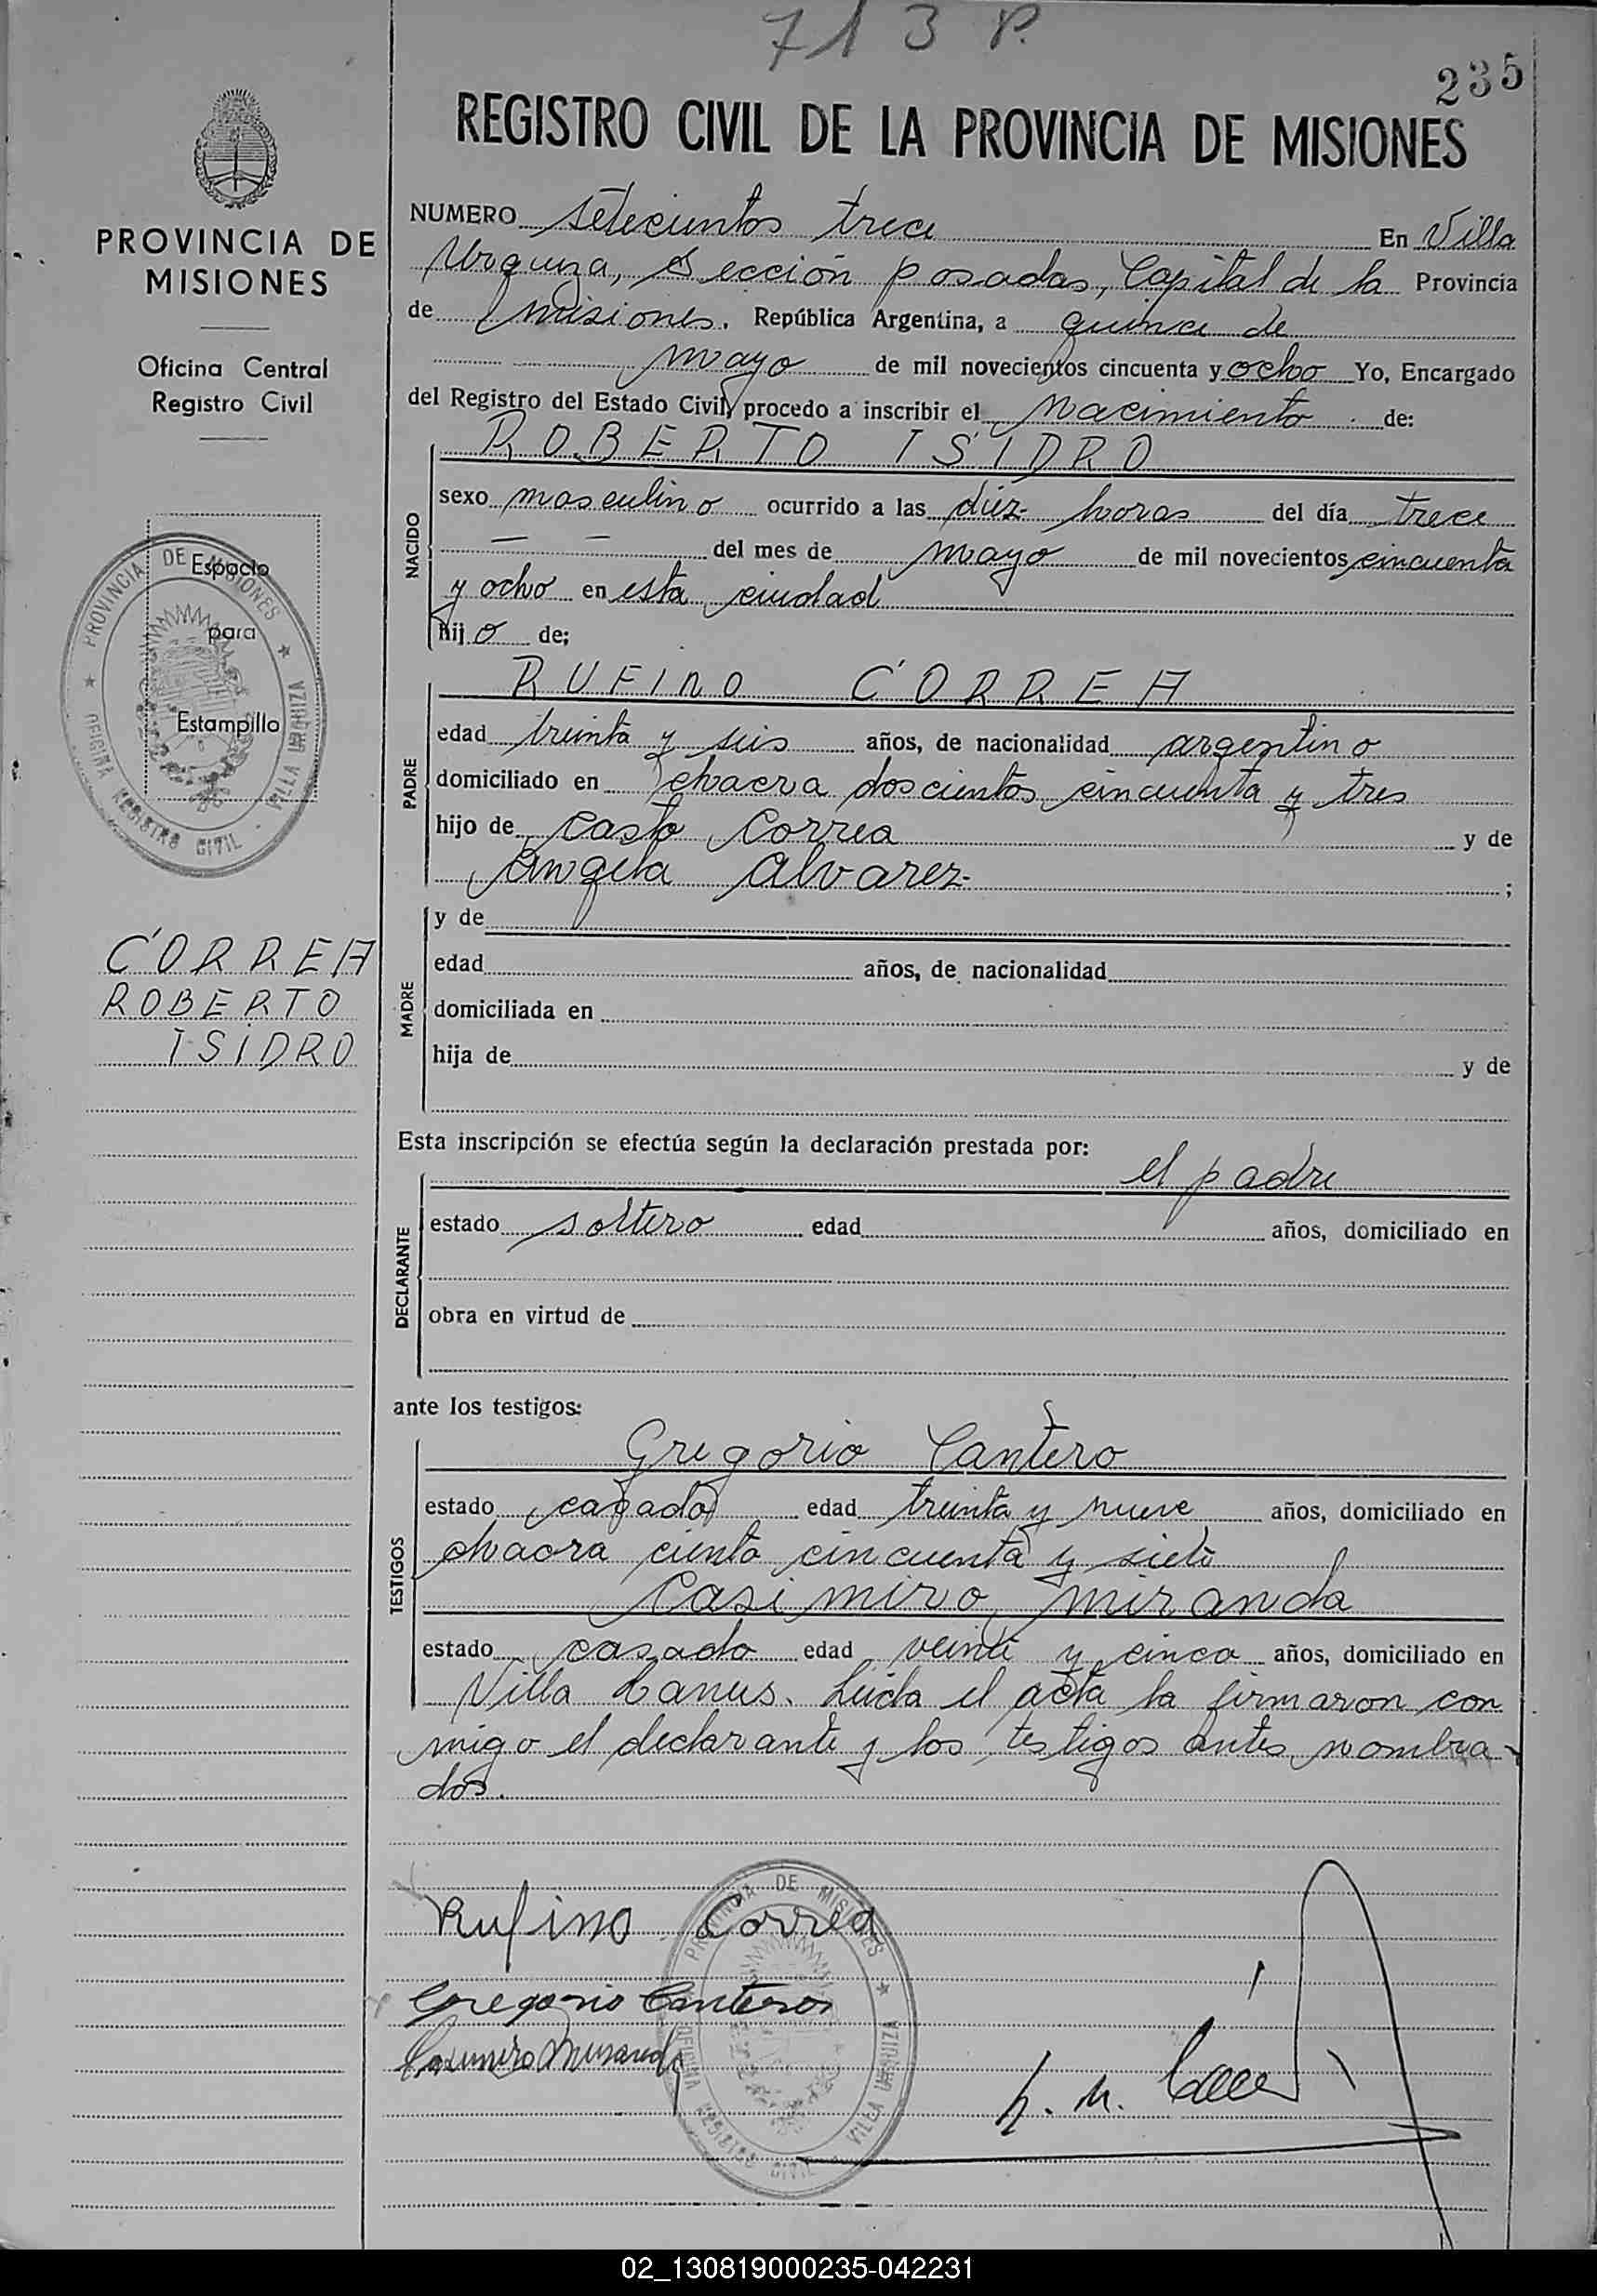 713 P.
235
REGISTRO CIVIL DE LA PROVINCIA DE MISIONES
PROVINCIA DE
MISIONES
Oficina Central
Registro Civil
Espacio
para
Estampilla
PROVINCIA DE MISIONES
OFICINA REGISTRO CIVIL - VILLA URQUIZA
CORREA
ROBERTO
ISIDRO
NUMERO setecientos trece En Villa
Urquiza, Sección posadas, Capital de la Provincia
de misiones. República Argentina, a quince de
mayo de mil novecientos cincuenta y ocho Yo, Encargado
del Registro del Estado Civil, procedo a inscribir el Nacimiento de:
NACIDO
ROBERTO ISIDRO
sexo masculino ocurrido a las diez horas del día trece
— — del mes de mayo de mil novecientos cincuenta
y ocho en esta ciudad
hijo de;
PADRE
RUFINO CORREA
edad treinta y seis años, de nacionalidad argentino
domiciliado en chacra doscientos cincuenta y tres
hijo de Casto Correa y de
Angela Alvarez ;
MADRE
y de
edad años, de nacionalidad
domiciliada en
hija de y de
Esta inscripción se efectúa según la declaración prestada por:
DECLARANTE
el padre
estado soltero edad años, domiciliado en
obra en virtud de
ante los testigos:
TESTIGOS
Gregorio Cantero
estado casado edad treinta y nueve años, domiciliado en
chacra ciento cincuenta y siete
Casimiro miranda
estado casado edad veinte y cinco años, domiciliado en
Villa Lanus. Leida el acta la firmaron con
migo el declarante y los testigos antes nombra-
dos.
Rufino Correa
Gregorio Canteros
Casimiro Miranda
PROVINCIA DE MISIONES
OFICINA REGISTRO CIVIL - VILLA URQUIZA
02_130819000235-042231